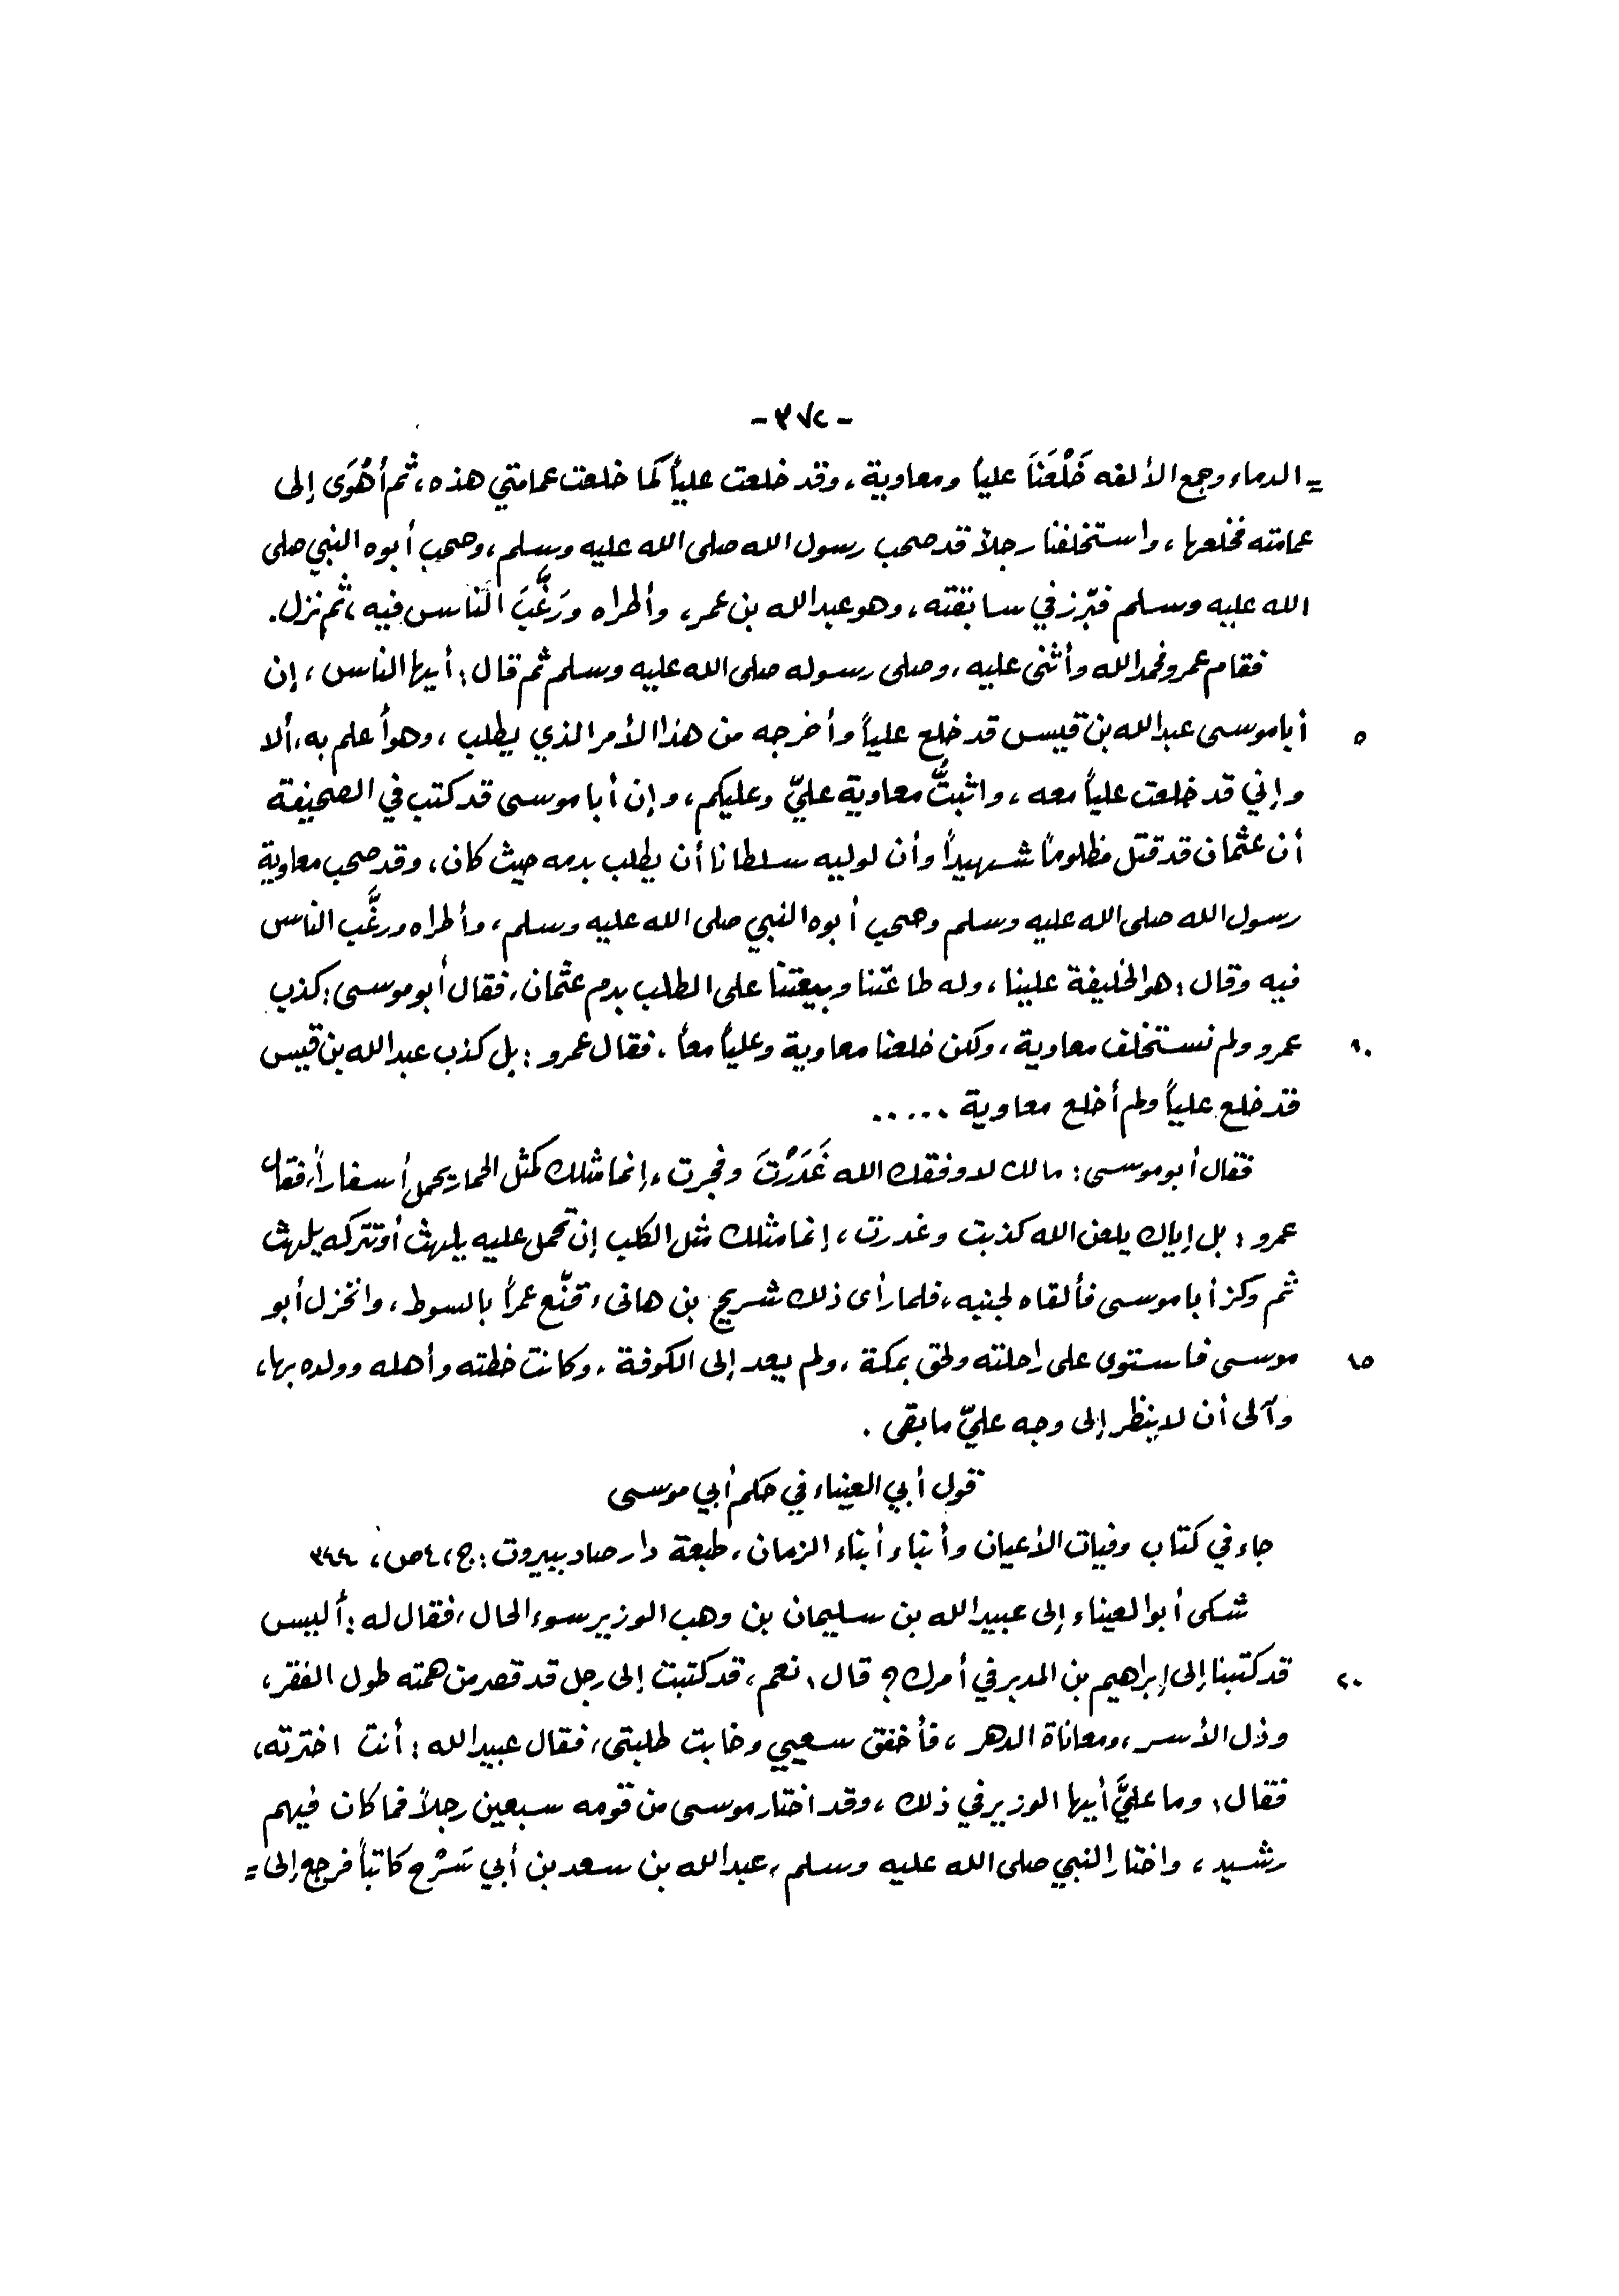 - ٣٧٢ -
= الدماء وجمع الألفه خَلْعَنَا علياً ومعاوية، وقد خلعت علياً كما خلعت عمامتي هذه، ثم أهْوَى إلى
عمامته فخلعها، واستخلفنا رجلاً قد صحب رسول الله صلى الله عليه وسلم، وصحب أبوه النبي صلى
الله عليه وسلم فبّرز في سابقته، وهو عبد الله بن عمر، وأطراه ورَغَّبَ الناس فيه، ثم نزل.
فقام عمرو فحمد الله وأثنى عليه، وصلى رسوله صلى الله عليه وسلم ثم قال: أيها الناس، إن
٥ أبا موسى عبد الله بن قيس قد خلع علياً وأخرجه من هذا الأمر الذي يطلب، وهو أعلم به، ألا
وإني قد خلعت علياً معه، واثبتُّ معاوية عليّ وعليكم، وإن أبا موسى قد كتب في الصحيفة
أن عثمان قد قتل مظلوماً شهيداً وأن لوليه سلطانا أن يطلب بدمه حيث كان، وقد صحب معاوية
رسول الله صلى الله عليه وسلم وصحب أبوه النبي صلى الله عليه وسلم، وأطراه ورغَّب الناس
فيه وقال: هو الخليفة علينا، وله طاعتنا وبيعتنا على الطلب بدم عثمان، فقال أبو موسى: كذب
١٠ عمرو ولم نستخلف معاوية، ولكن خلعنا معاوية وعلياً معاً. فقال عمرو: بل كذب عبد الله بن قيس
قد خلع علياً ولم أخلع معاوية .....
فقال أبو موسى: مالك لا وفقك الله غَدَرْتَ وفجرت، إنما مثلك كمثل الحمار يحمل أسفاراً، فقال
عمرو: بل إياك يلعن الله كذبت وغدرت، إنما مثلك مثل الكلب إن تحمل عليه يلهث أو تتركه يلهث
ثم وكز أبا موسى فألقاه لجنبه، فلما رأى ذلك شريح بن هانىء قنّع عمراً بالسوط، وانخزل أبو
١٥ موسى فاستوى على راحلته ولحق بمكة، ولم يعد إلى الكوفة، وكانت خطته وأهله وولده بها،
وآلى أن لا ينظر إلى وجه عليّ ما بقى.
قول أبي العيناء في حكم أبي موسى
جاء في كتاب وفيات الأعيان وأنباء أبناء الزمان، طبعة دار صادر ببيروت: ج، ٤ ص، ٣٤٤
شكى أبو العيناء إلى عبيد الله بن سليمان بن وهب الوزير سوء الحال، فقال له: أليس
٢٠ قد كتبنا إلى إبراهيم بن المدبر في أمرك؟ قال: نعم، قد كتبت إلى رجل قد قصر من همته طول الفقر،
وذل الأسر، ومعاناة الدهر، فأخفق سعيي وخابت طلبتي، فقال عبيد الله: أنت اخترته،
فقال: وما عليَّ أيها الوزير في ذلك، وقد اختار موسى من قومه سبعين رجلاً فما كان فيهم
رشيد، واختار النبي صلى الله عليه وسلم، عبد الله بن سعد بن أبي سَرْح كاتباً فرجع إلى =